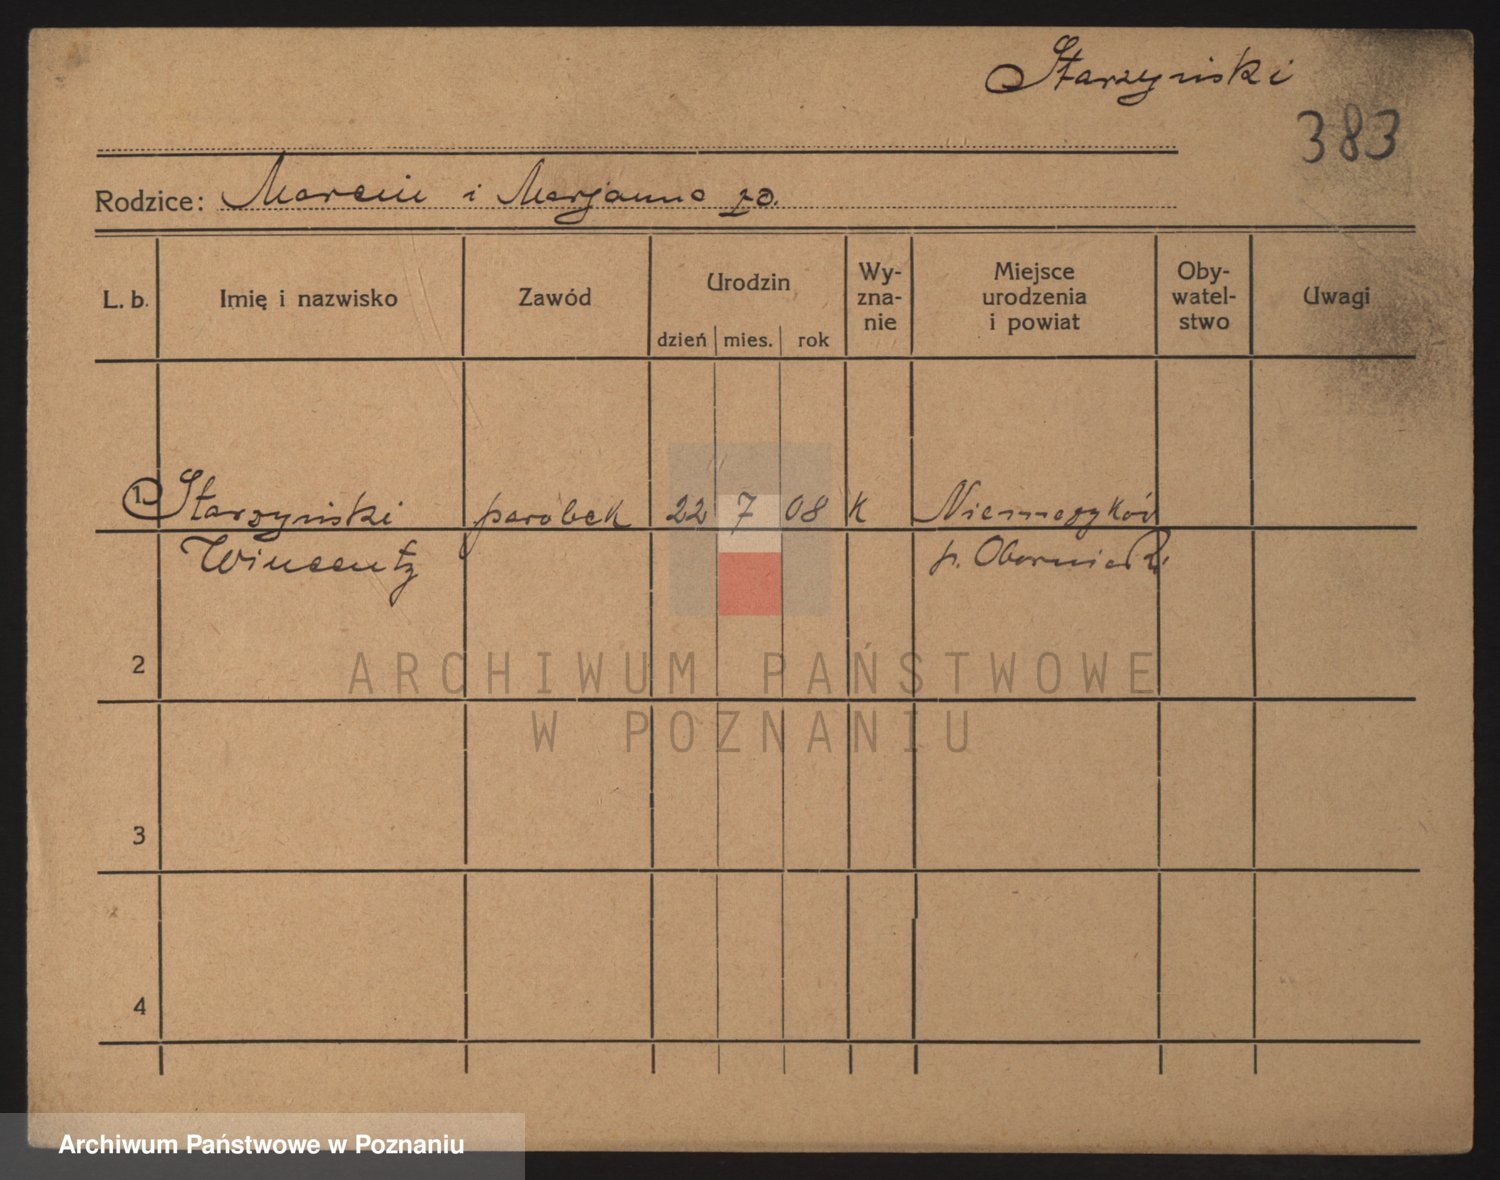 Starzyński
383
Rodzice: Marcin i Marjanna zd.
L. b. Imię i nazwisko Zawód Urodzin Wy-zna-nie Miejsce urodzenia i powiat Oby-watel-stwo Uwagi
dzień mies. rok
1. Starzyński parobek 22 7 08 K
Wincenty p. Oborniki
2
ARCHIWUM PAŃSTWOWE
W POZNANIU
3
4
Archiwum Państwowe w Poznaniu